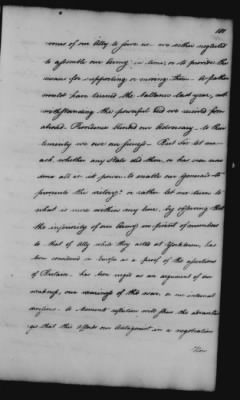 of our Ally to serve us - we either neglected
to assemble our Army in time, or to provide the
means for supporting or moving them. A feather
would have turned the ballance last year, not
withstanding the powerful aid we received from
abroad. Providence blinded our Adversary. to their
temerity we owe our success - But Sir let me
ask, whether any State did then, or has ever now
done all in it power to enable our generals to
the victory? or rather let me turn to
what is more within my line, by observing that
the inferiority of our Army in point of numbers
to that of Ally while they acted at York town, has
been considered in Europe as a proof of the assertions
of Britain - has been urged as an argument of our
weakness, our weariness of the war, or our internal
divisions. A moment's reflection will shew the advanta-
ges that this affords our Antagonist in a negotiation